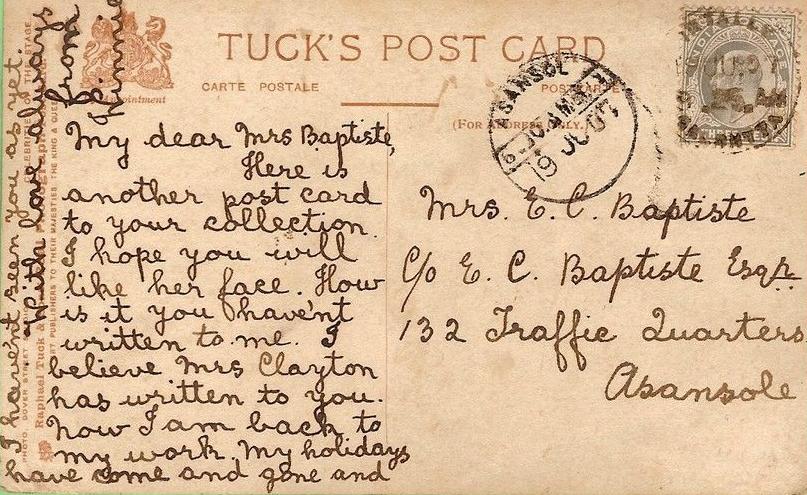 TUCK'S POST CARD
CARTE POSTALE
POSTKARTE
(For Address Only.)
ASANSOL
19 JU 07
INDIA POSTAGE
My dear Mrs Baptiste,
Here is
another post card
to your collection.
I hope you will
like her face. How
is it you haven't
written to me. I
believe Mrs Clayton
has written to you.
now I am back to
my work. My holidays
have come and gone and
I haven't seen you as yet.
with love always
from
Minnie
Mrs. E. C. Baptiste
C/o E. C. Baptiste Esqr.
132 Traffic Quarters
Asansole
Raphael Tuck &
TO THEIR MAJESTIES THE KING &